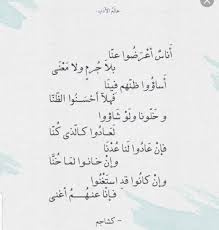 عالم الأدب
أناسٌ أعْرَضُوا عنّا
بلاَ جُرمٍ ولا مَعْنَى
أساؤوا ظنّهم فينا
فهلّا أحْسَنُوا الظَّنَّا
و خَلّونا ولَوْ شَاؤوا
لعَادُوا كالّذي كُنّا
فإنْ عَادُوا لنَا عُدْنَا
وإنْ خانوا لمَا خُنَّا
وإنْ كانُوا قدِ استَغْنُوا
فإنّا عنهُــم أغنى
- كشاجم